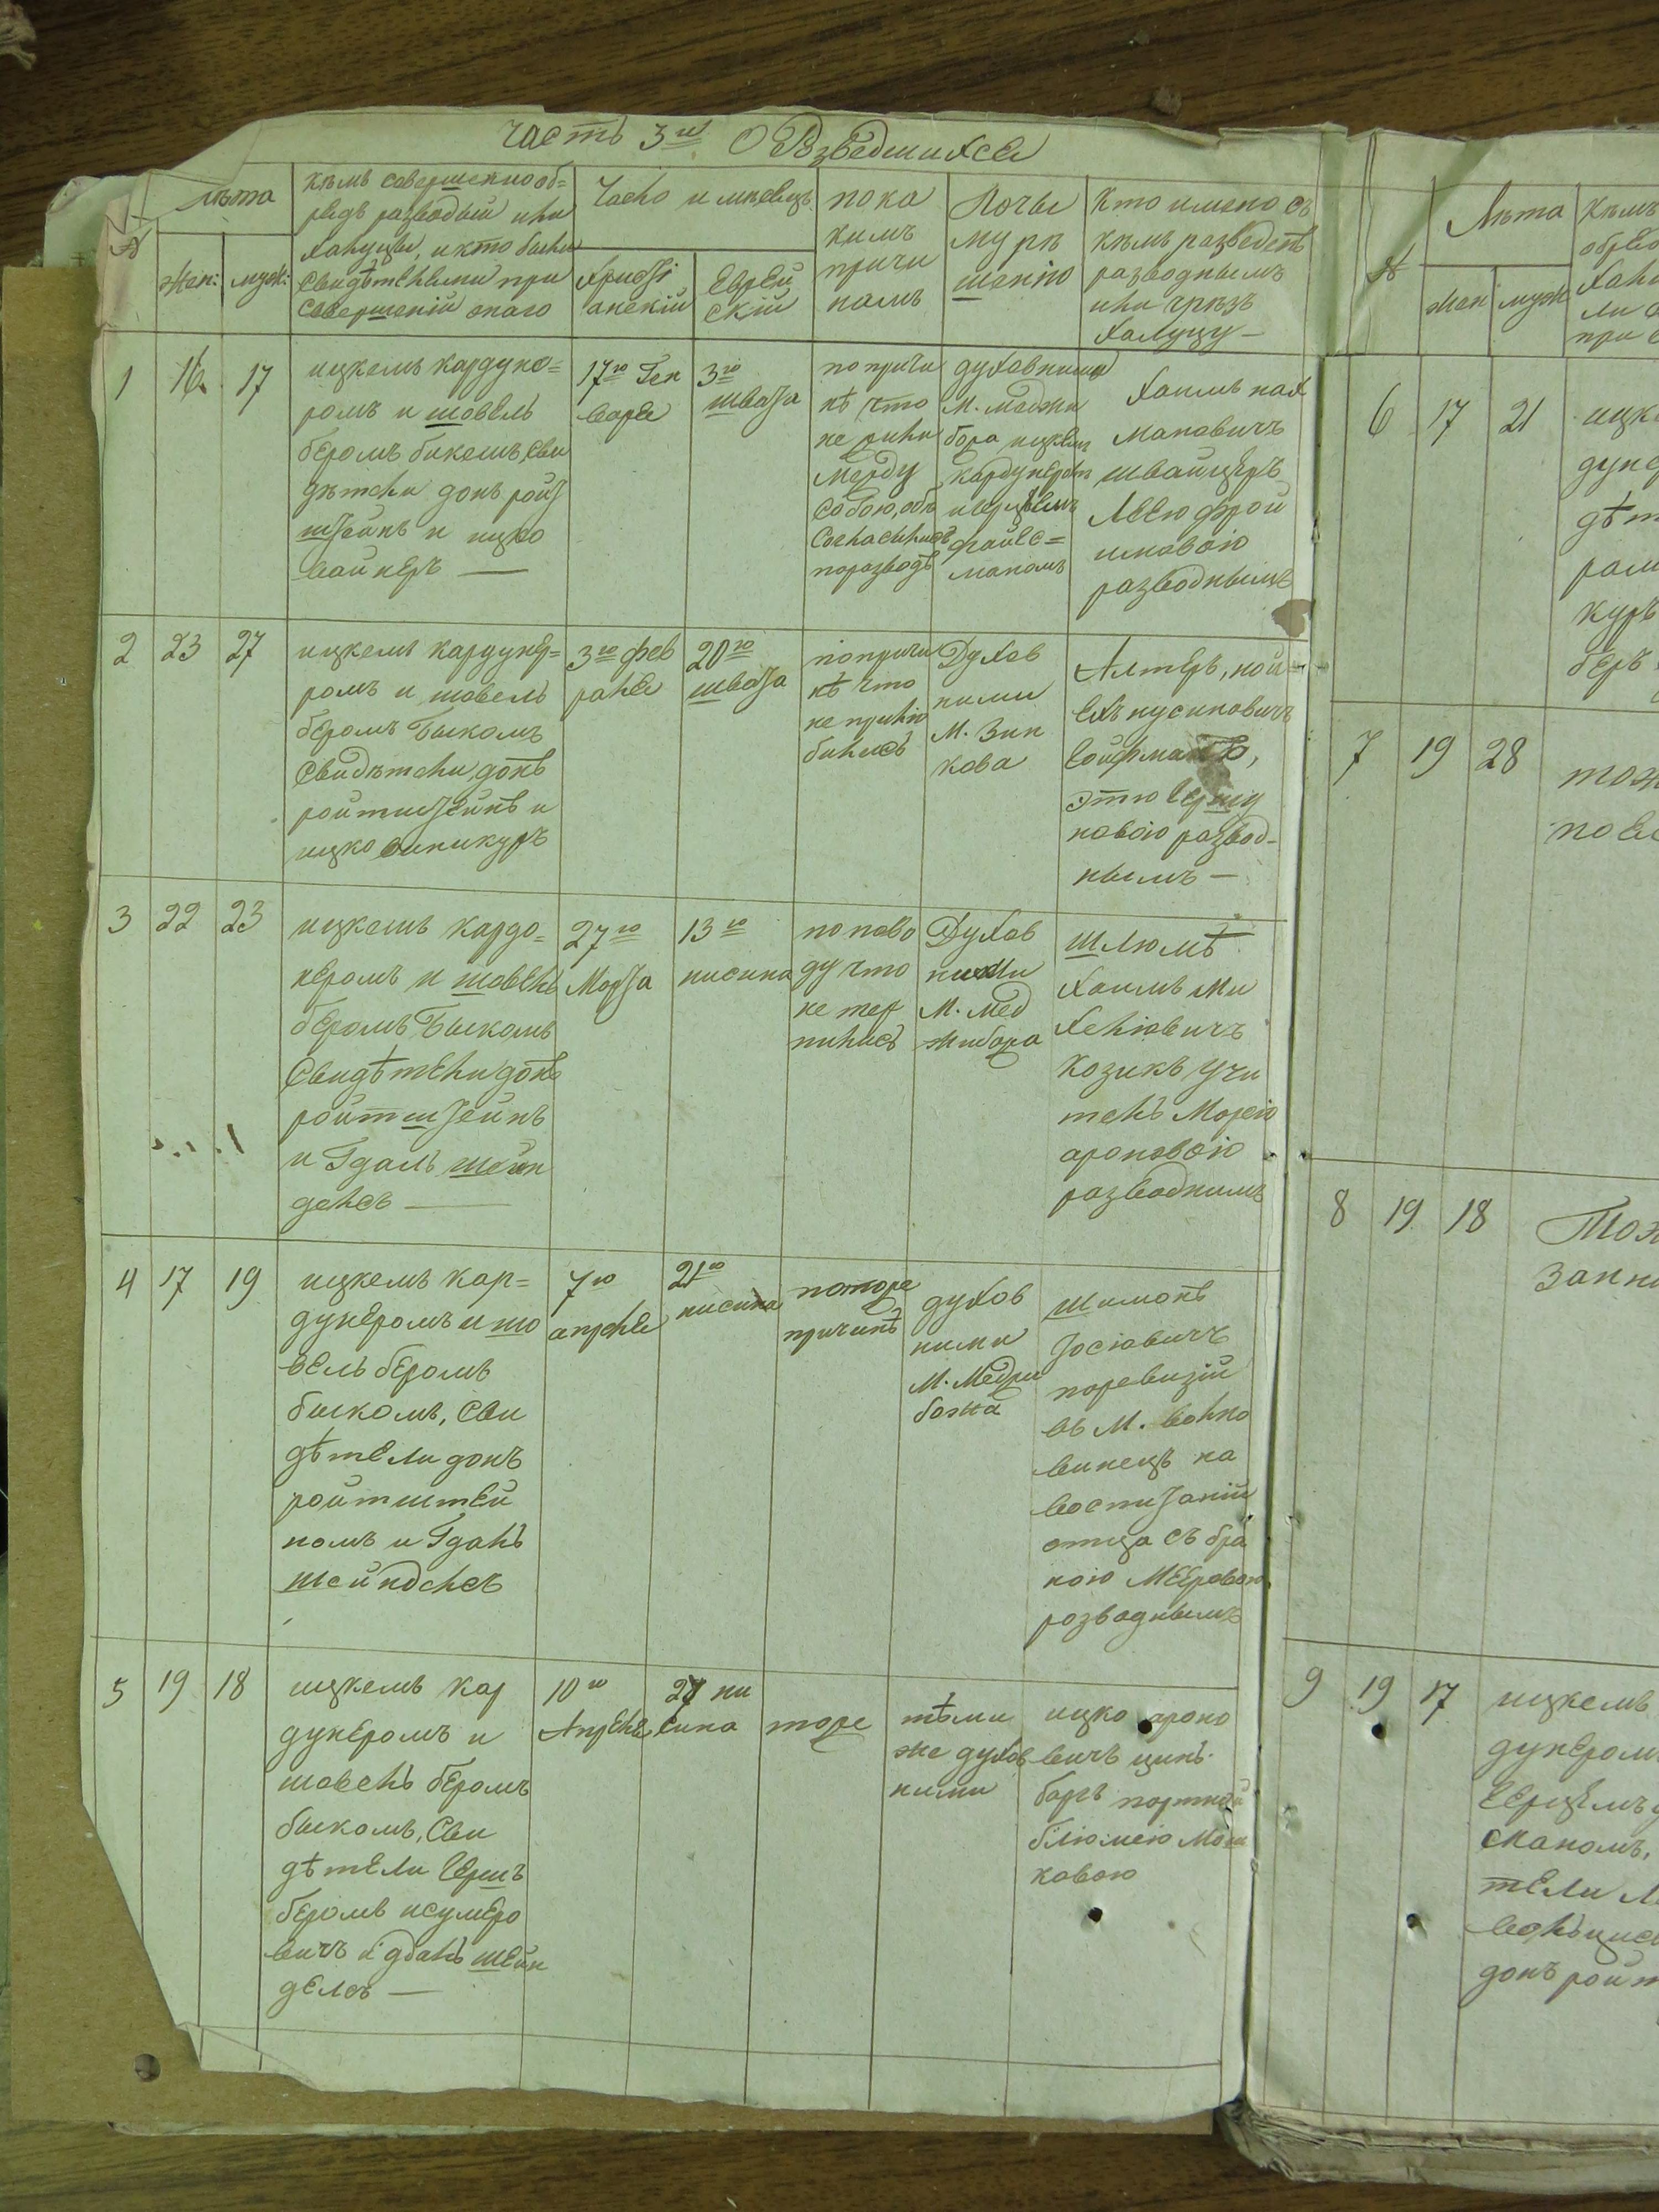 Часть 3я О Розведшихся
№
Лѣта
жен:
муж:
Кѣмъ совершенно об=
рядъ разводый или
халуцы, и кто были
свидѣтелями при
совершеній онаго
Число и мѣсяцъ
Христі
анскій
Еврей
скій
по ка
кимъ
причи
намъ
По чье
му рѣ
шенію
Кто имено съ
кѣмъ разведенъ
разводнымъ
или чрезъ
халуцу —
1
16
17
ицкемъ кардуне=
ромъ и шовель
беромъ бикомъ, сви
дѣтели донъ ройт
штейнъ и ицко
вайнеръ —
17го Ген
варя
3го
швата
по причи
нѣ что
не жили
между
собою, объ
согласились
поразводъ
духовними
М. Меджи
бора ицкемъ
кардунеромъ
и герцѣмъ
файес=
маномъ
Хаимъ нах
мановичъ
швайцеръ
Лѣею фрои
мовою
разводнымъ
2
23
27
ицкемъ кардуне=
ромъ и шовель
беромъ Быкомъ
Свидѣтели, донъ
ройтштейнъ и
ицко виникуръ
3го фев
раля
20го
швата
по причи
нѣ что
не прилю
бились
Духов
ними
М. Зин
кова
Алтеръ, ной
ехъ нусиновичъ
гойфманъ,
Этю гершу
новою развод-
нымъ —
3
22
23
ицкемъ кардо=
неромъ и шовель
беромъ Быкомъ
Свидѣтели донъ
ройтштейнъ
и Гдаль шейн
дельсъ —
27го
Марта
13го
нисина
по пово
ду что
не тер
пились
Духов
ними
М. Мед
жибора
Шлюмѣ
Хаимъ Ми
хелювичъ
Козикъ учи
тель Марею
ароновою
разводнимъ
4
17
19
ицкемъ кар=
дунеромъ и шо
вель беромъ
быкомъ, Сви
дѣтели донъ
ройтштей
номъ и Гдаль
шейндельсъ
7го
апреля
21го
нисина
по тоже
причинѣ
духов
ними
М. Меджи
божа
шимонъ
Іосіовичъ
по ревизій
въ М. Волко
винецъ на
воспитаній
отца съ бра
ною Мееровою
розводнымъ
5
19
18
ицкемъ кар
дунеромъ и
шовель беромъ
быкомъ, Сви
дѣтели Гершъ
беромъ исумеро
вичъ и гдаль шейн
делсъ —
10го
Апреля
27 ни
сина
тоже
тѣми
же духов
ними
ицко ароно
вичъ цинь
баргъ портной
блюмею Мош
ковою
№
Лѣта
жен
муж
Кѣмъ
6
17
21
7
19
28
8
19
18
9
19
17
ицкемъ
дунеромъ
сканомъ,
тели